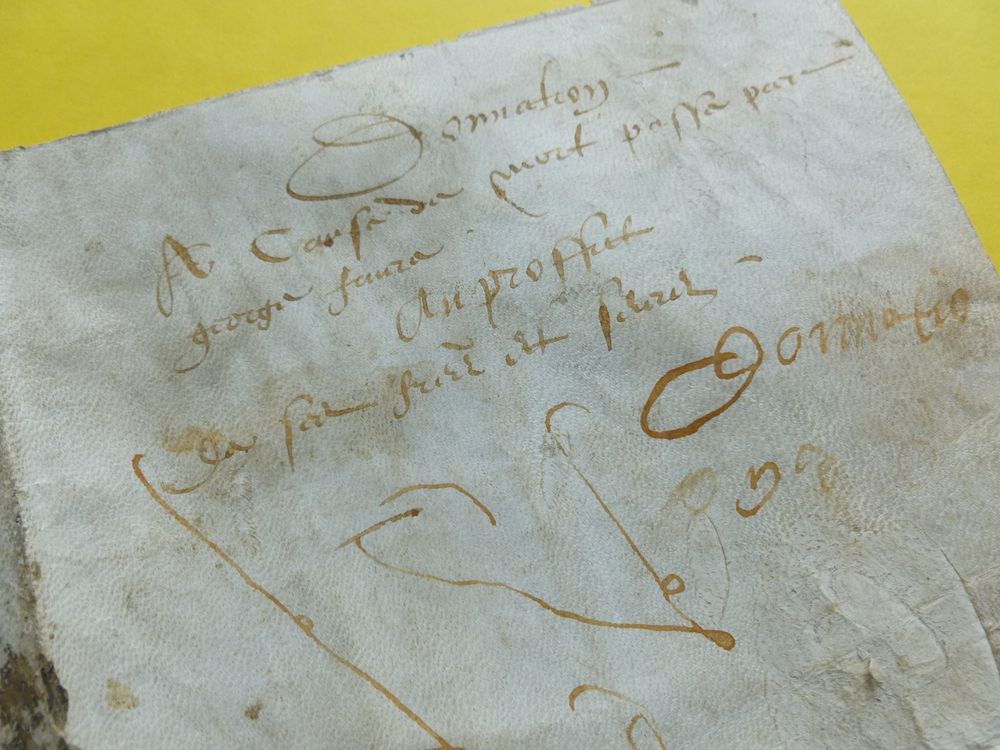 Donnation
A Cause de mort passé par
george faure
Au proffict
de ses freres et seures
Donnatio